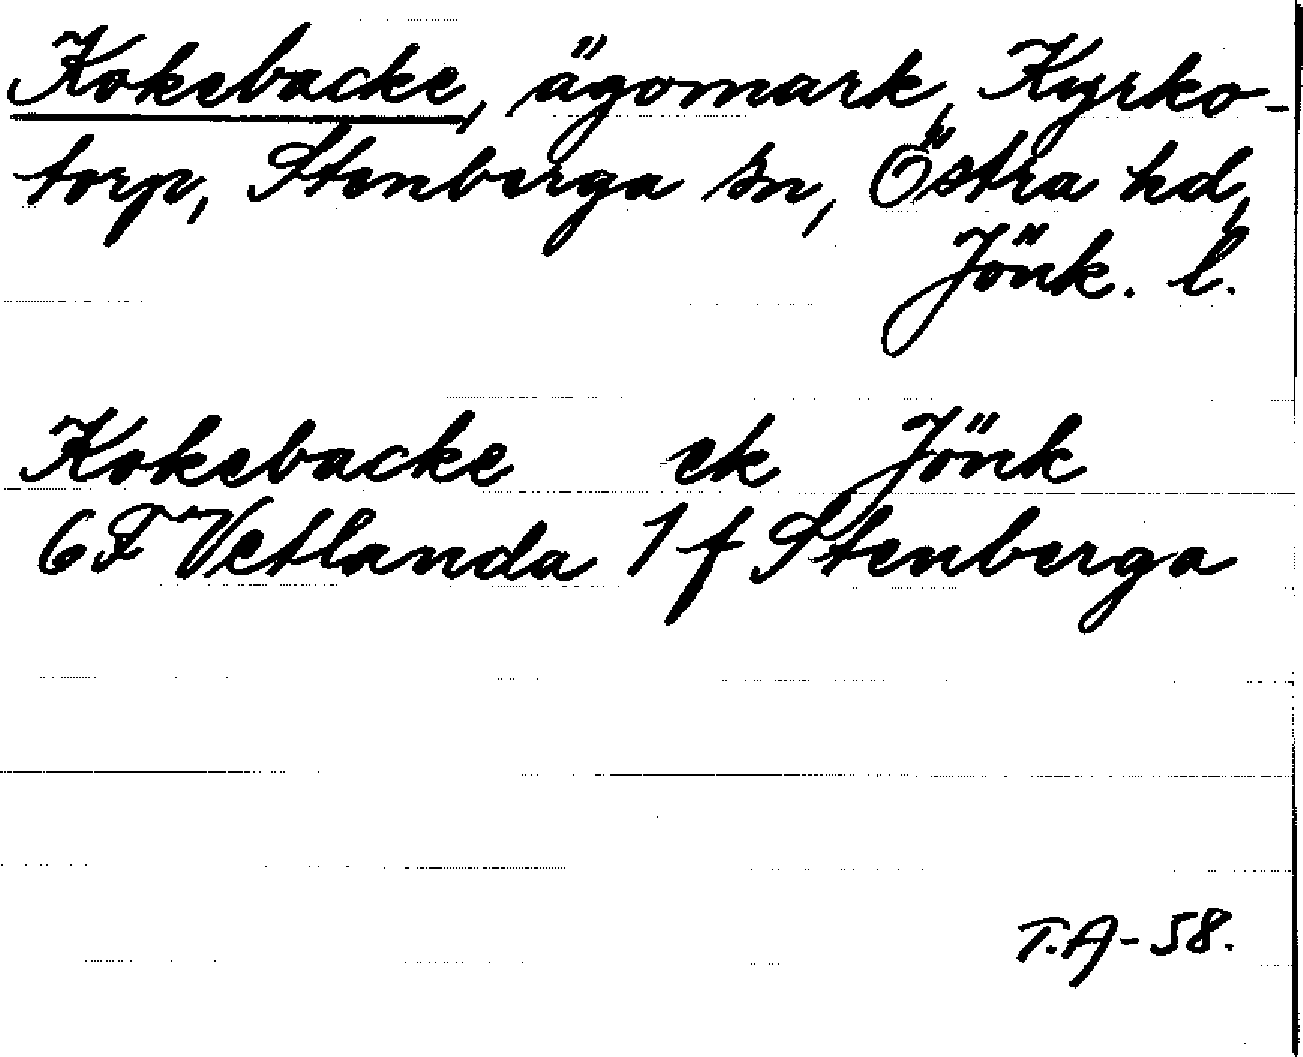 Kokebacke, ägomark, Kyrko-
torp, Stenberga sn, Östra hd,
Jönk. l.
Kokebacke ek Jönk
6F Vetlanda 1 f Stenberga
T.A-58.